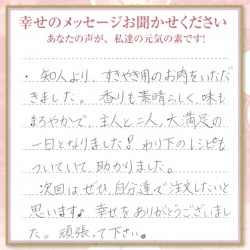 幸せのメッセージお聞かせください
あなたの声が、私達の元気の素です!
・知人より、すきやき用のお肉をいただ
きました。香りも素晴らしく、味も
まろやかで、主人と二人、大満足の
一日となりました! わり下のレシピも
ついていて、助かりました。
次回はぜひ、自分達で注文したいと
思います♪ 幸せをありがとうございまし
た。頑張って下さい。